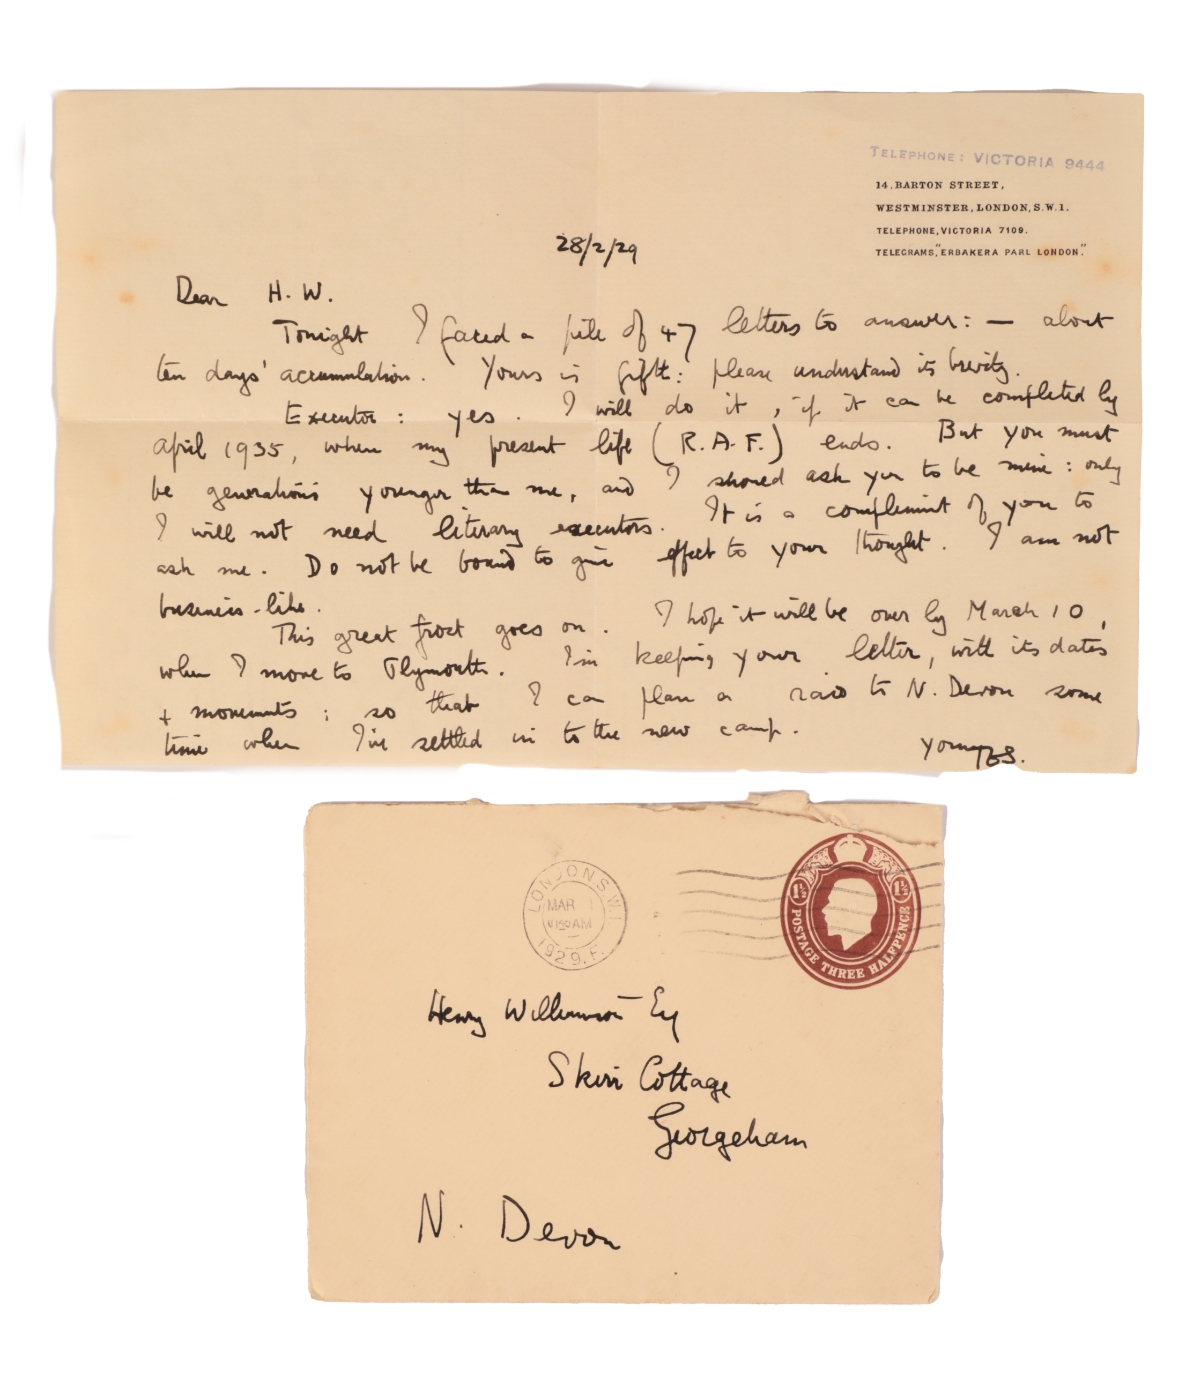 TELEPHONE: VICTORIA 9444
14, BARTON STREET,
WESTMINSTER, LONDON, S.W.1.
TELEPHONE, VICTORIA 7109.
TELEGRAMS, "ERBAKERA PARL LONDON."
28/2/29
Dear H. W.
Tonight I faced a pile of 47 letters to answer: — about
ten days' accumulation. Yours is fifth: please understand its brevity.
Executor: yes. I will do it, if it can be completed by
April 1935, when my present life (R.A.F.) ends. But you must
be generations younger than me, and I should ask you to be mine: only
I will not need literary executors. It is a compliment of you to
ask me. Do not be bound to give effect to your thought. I am not
business-like.
This great frost goes on. I hope it will be over by March 10,
when I move to Plymouth. I'm keeping your letter, with its dates
+ movements: so that I can plan a raid to N. Devon some
time when I've settled in to the new camp.
Yours
TES.
LONDON S.W.1.
MAR
AM
1929. F.
1½ 1½
POSTAGE THREE HALFPENCE
Henry Williamson Esq
Skirr Cottage
Georgeham
N. Devon